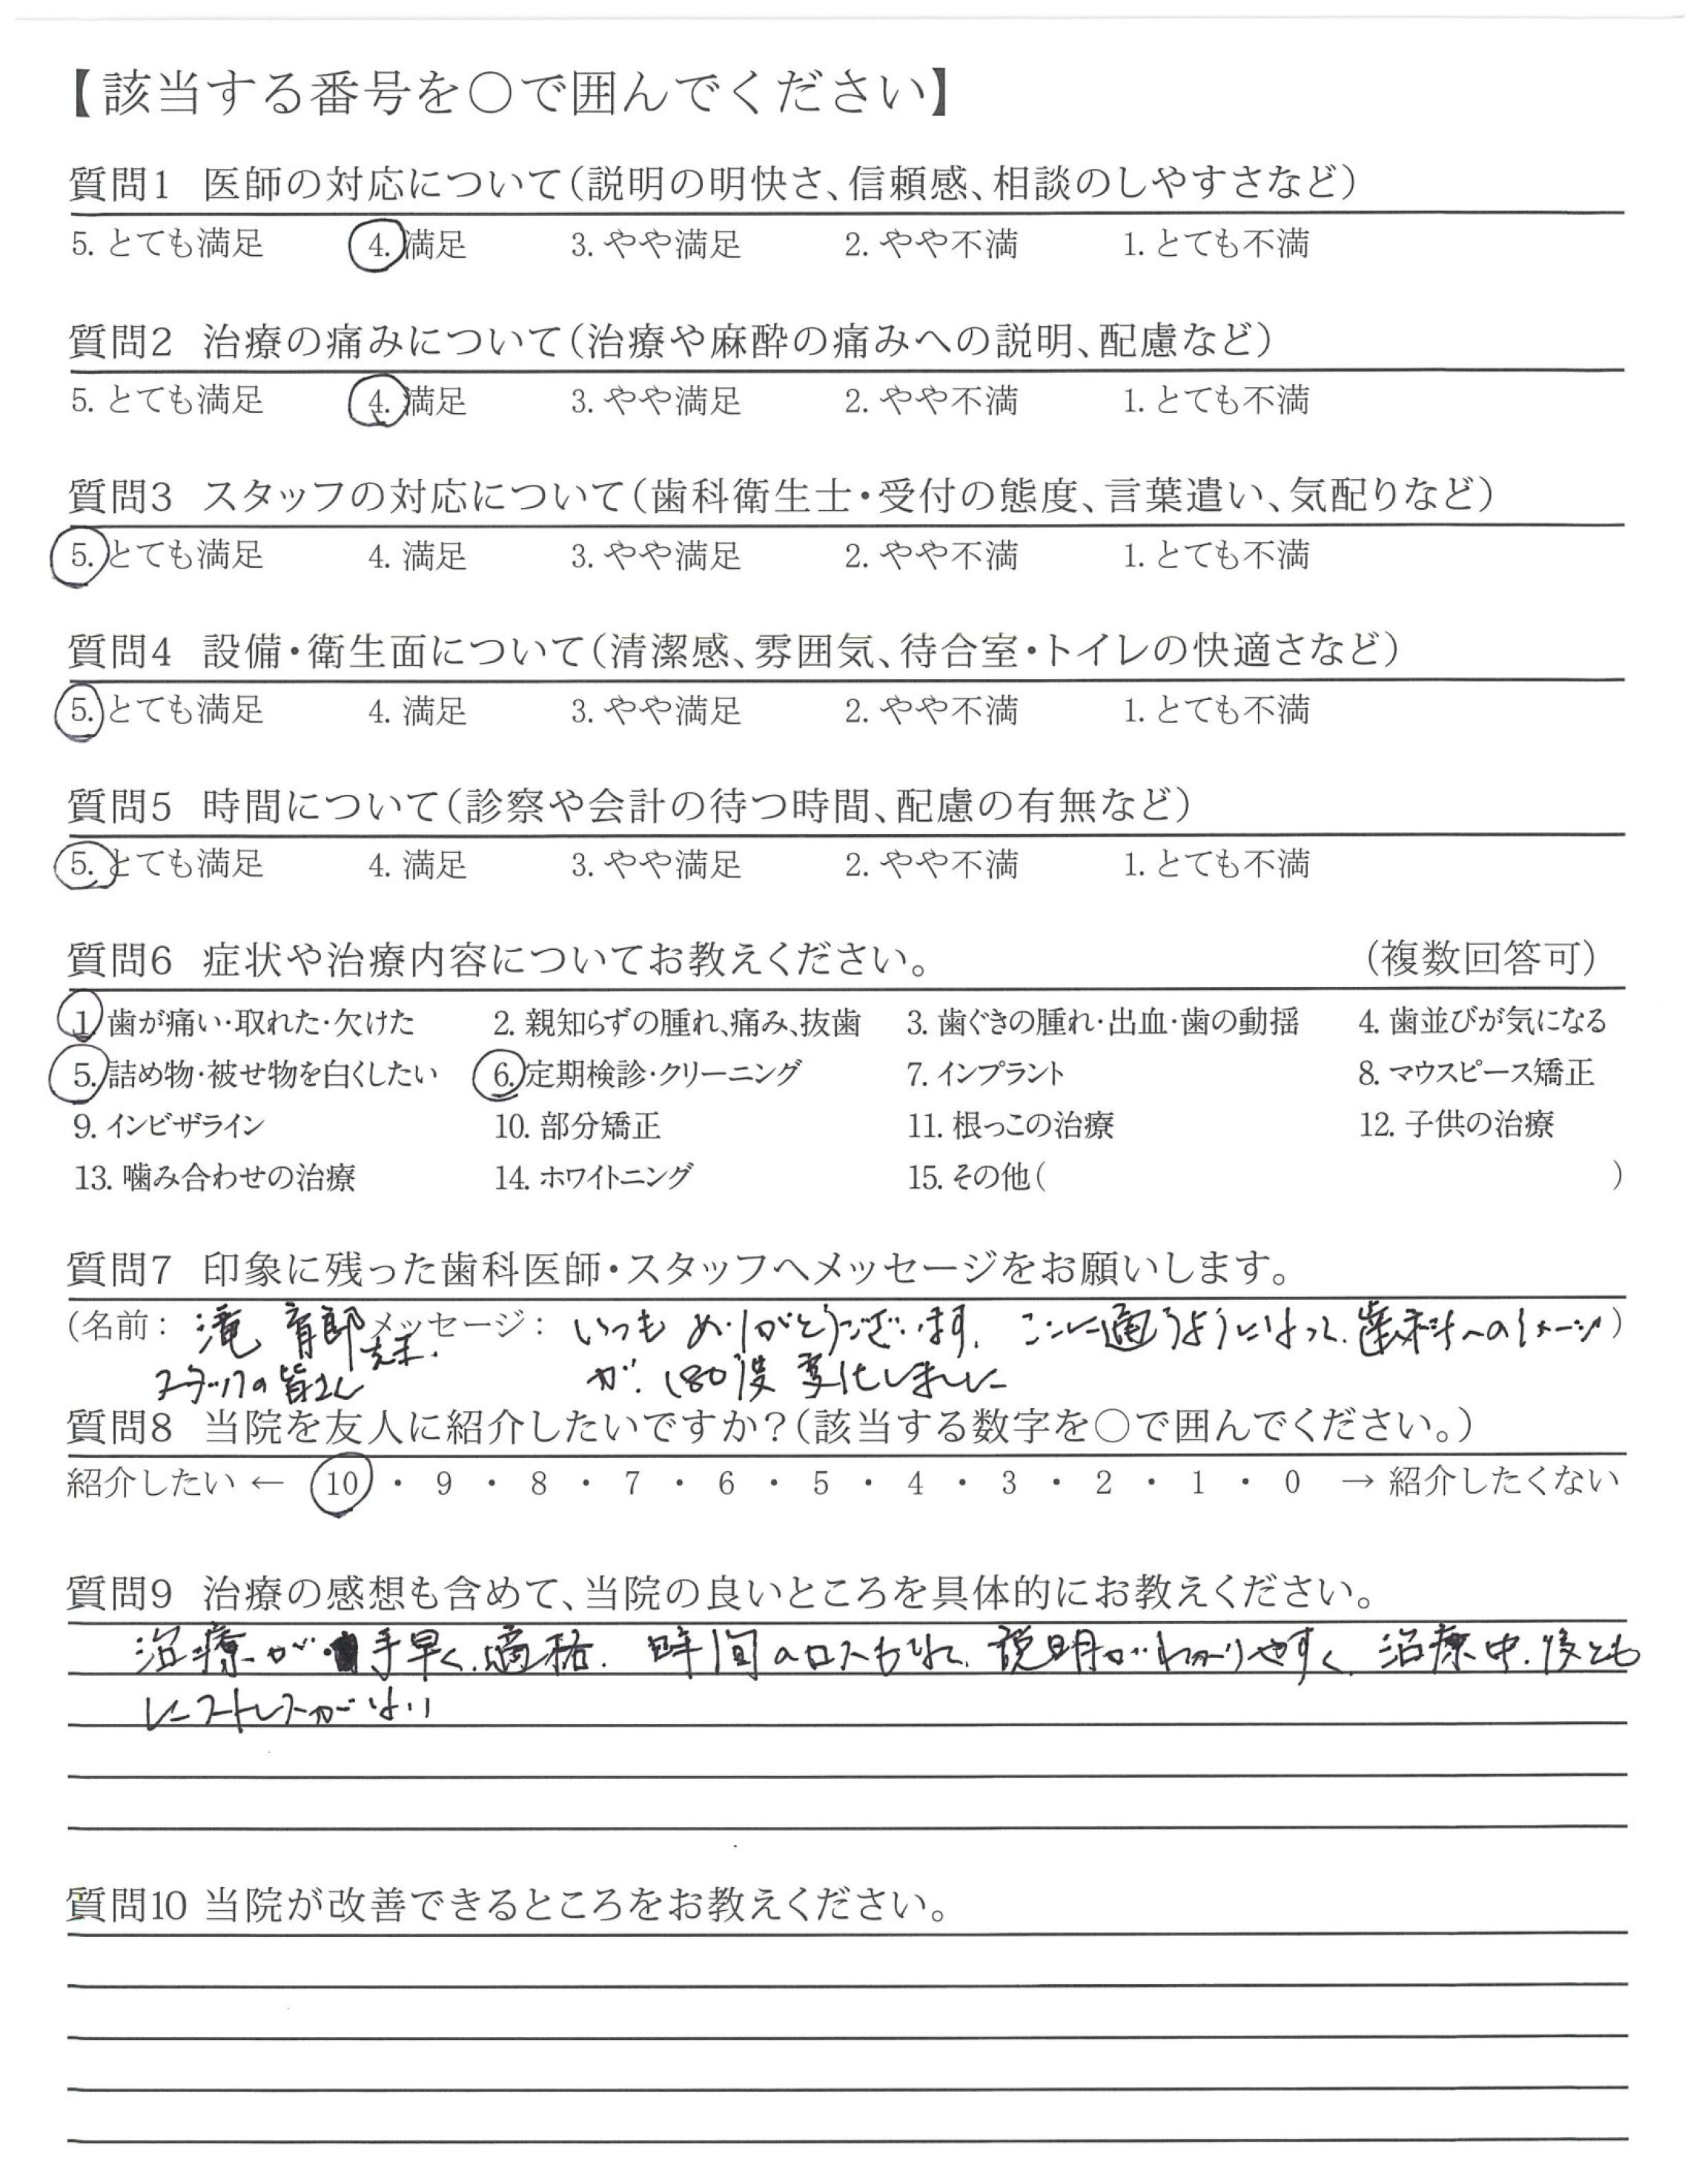 【該当する番号を○で囲んでください】
質問1 医師の対応について(説明の明快さ、信頼感、相談のしやすさなど)
5. とても満足 4. 満足 3. やや満足 2. やや不満 1. とても不満
質問2 治療の痛みについて(治療や麻酔の痛みへの説明、配慮など)
5. とても満足 4. 満足 3. やや満足 2. やや不満 1. とても不満
質問3 スタッフの対応について(歯科衛生士・受付の態度、言葉遣い、気配りなど)
5. とても満足 4. 満足 3. やや満足 2. やや不満 1. とても不満
質問4 設備・衛生面について(清潔感、雰囲気、待合室・トイレの快適さなど)
5. とても満足 4. 満足 3. やや満足 2. やや不満 1. とても不満
質問5 時間について(診察や会計の待つ時間、配慮の有無など)
5. とても満足 4. 満足 3. やや満足 2. やや不満 1. とても不満
質問6 症状や治療内容についてお教えください。 (複数回答可)
1. 歯が痛い・取れた・欠けた 2. 親知らずの腫れ、痛み、抜歯 3. 歯ぐきの腫れ・出血・歯の動揺 4. 歯並びが気になる
5. 詰め物・被せ物を白くしたい 6. 定期検診・クリーニング 7. インプラント 8. マウスピース矯正
9. インビザライン 10. 部分矯正 11. 根っこの治療 12. 子供の治療
13. 噛み合わせの治療 14. ホワイトニング 15. その他( )
質問7 印象に残った歯科医師・スタッフへメッセージをお願いします。
(名前: 滝 育郎 先生. メッセージ: いつもありがとうございます。ここに通うようになって、歯科へのイメージ)
スタッフの皆さん が、180°度変化しました
質問8 当院を友人に紹介したいですか?(該当する数字を○で囲んでください。)
紹介したい ← 10 ・ 9 ・ 8 ・ 7 ・ 6 ・ 5 ・ 4 ・ 3 ・ 2 ・ 1 ・ 0 → 紹介したくない
質問9 治療の感想も含めて、当院の良いところを具体的にお教えください。
治療が手早く、適格、時間のロスもなく、説明がわかりやすく、治療中、後とも
にストレスがない
質問10 当院が改善できるところをお教えください。